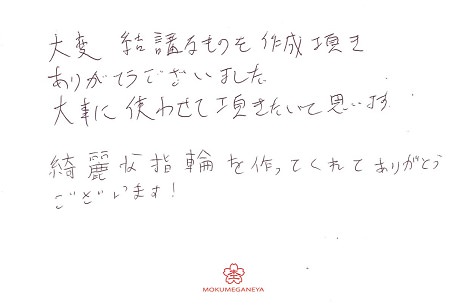 大変 結講なものを 作成頂き
ありがとうございました
大事に 使わせて頂きたいと思います
綺麗な指輪を作ってくれてありがとう
ございます!
MOKUMEGANEYA